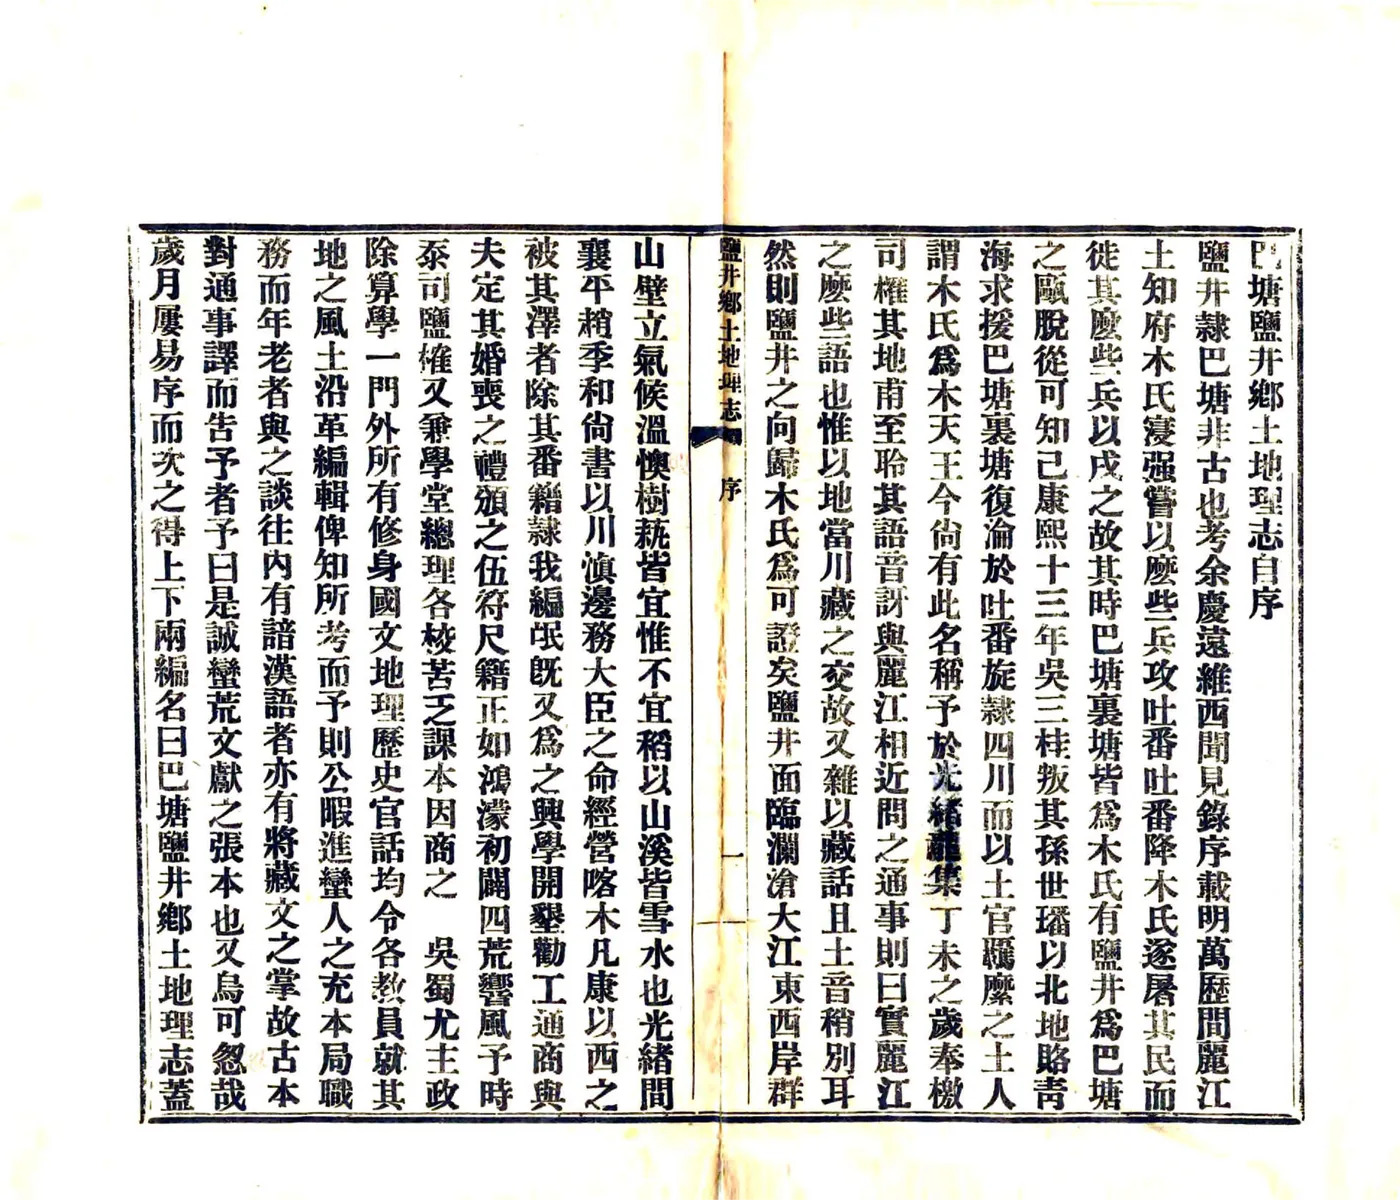 巴塘鹽井鄉土地理志自序
鹽井隷巴塘非古也考余慶遠維西聞見錄序載明萬歷間麗江
土知府木氏寖强嘗以麼些兵攻吐番吐番降木氏遂屠其民而
徙其麼些兵以戍之故其時巴塘裏塘皆爲木氏有鹽井爲巴塘
之甌脫從可知已康熙十三年吳三桂叛其孫世璠以北地賂靑
海求援巴塘裏塘復淪於吐番旋隷四川而以土官羈縻之土人
謂木氏爲木天王今尙有此名稱予於光緒龍集丁未之歲奉檄
司榷其地甫至聆其語音訝與麗江相近問之通事則曰實麗江
之麼些語也惟以地當川藏之交故又雜以藏話且土音稍別耳
然則鹽井之向歸木氏爲可證矣鹽井面臨瀾滄大江東西岸群
鹽井鄉土地理志 序 一
山壁立氣候溫燠樹蓺皆宜惟不宜稻以山溪皆雪水也光緒間
襄平趙季和尙書以川滇邊務大臣之命經營喀木凡康以西之
被其澤者除其番籍隷我編氓旣又爲之興學開墾勸工通商與
夫定其婚喪之禮頒之伍符尺籍正如鴻濛初闢四荒響風予時
泰司鹽榷又兼學堂總理各校苦乏課本因商之 吳蜀尤主政
除算學一門外所有修身國文地理歷史官話均令各教員就其
地之風土沿革編輯俾知所考而予則公暇進蠻人之充本局職
務而年老者與之談往內有諳漢語者亦有將藏文之掌故古本
對通事譯而告予者予曰是誠蠻荒文獻之張本也又烏可忽哉
歲月屢易序而次之得上下兩編名曰巴塘鹽井鄉土地理志蓋